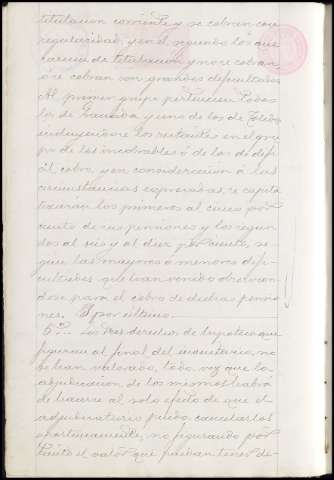 titulacion corriente y se cobran con
regularidad, y en el segundo los que
carecen de titulacion y no se cobran
ó se cobran con grandes dificultades
Al primer grupo pertenecen todos
los de Gandia y uno de los de Toledo
incluyendose los restantes en el gru-
po de los incobrables ó de los de difi-
cil cobro, y en consideracion á las
circunstancias expresadas, se capita-
lizarán los primeros al cinco por
ciento de sus pensiones y los segun-
dos al seis y al diez por ciento, se-
gun las mayores ó menores difi-
cultades que han venido observan-
dose para el cobro de dichas pensio-
nes. Y por ultimo.
5º. Los tres derechos de hipoteca que
figuran al final del inventario, no
se han valorado, toda vez que la
adjudicacion de los mismos habrá
de hacerse al solo efecto de que el
adjudicatario pueda cancelarlos
oportunamente, no figurando por
tanto el valor que puedan tener de-